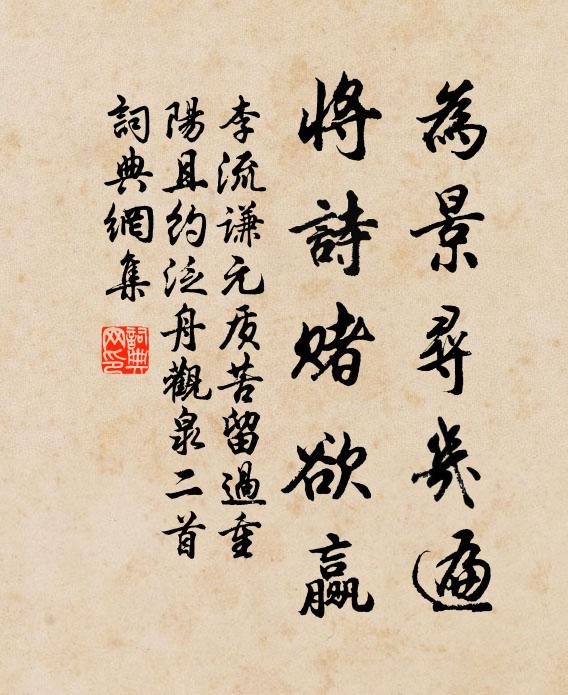 為景尋幾遍
將詩賭欲贏
李流謙元质苦留過重
陽且約泛舟觀泉二首
詞典網集
詞典网印